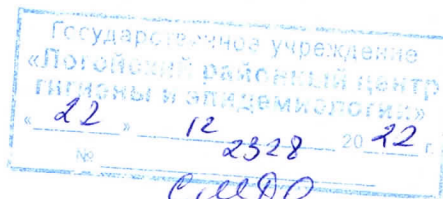 Государственное учреждение
«Логойский районный центр
гигиены и эпидемиологии»
«22» 12 2022 г.
№ 2328
СМДО